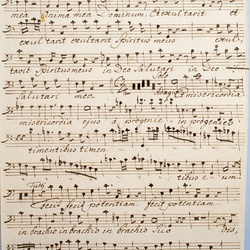 mea anima mea Dominum, et exultavit et
exultavit exultavit Spiritus meus exul,
tavit Spiritus meus in Deo Salutari in Deo
Salutari meo. misericordia
misericordia ejus a progenie in progenies
timentibus timen
tibus e um.
Tutti
fecit fecit potentiam fecit potentiam
in brachio in brachio in brachio suo